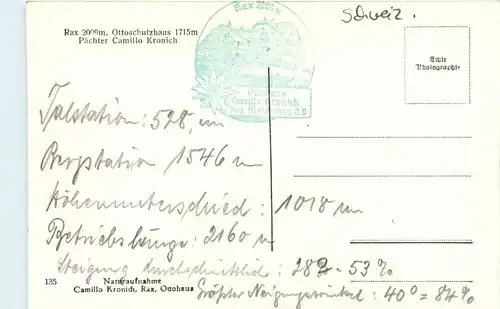 Schweiz.
Rax 2000m, Ottoschutzhaus 1715m
Pächter Camillo Kronich
Rax 2009m
Camillo Kronich
Echte
Photographie
Talstation: 528, m
Bergstation 1546 m
Höhenunterschied: 1018 m
Betriebslänge: 2160 m
Steigung durchschnittlich: 28° = 53%
Größter Neigungswinkel: 40° = 84%
135 Naturaufnahme
Camillo Kronich, Rax, Ottohaus